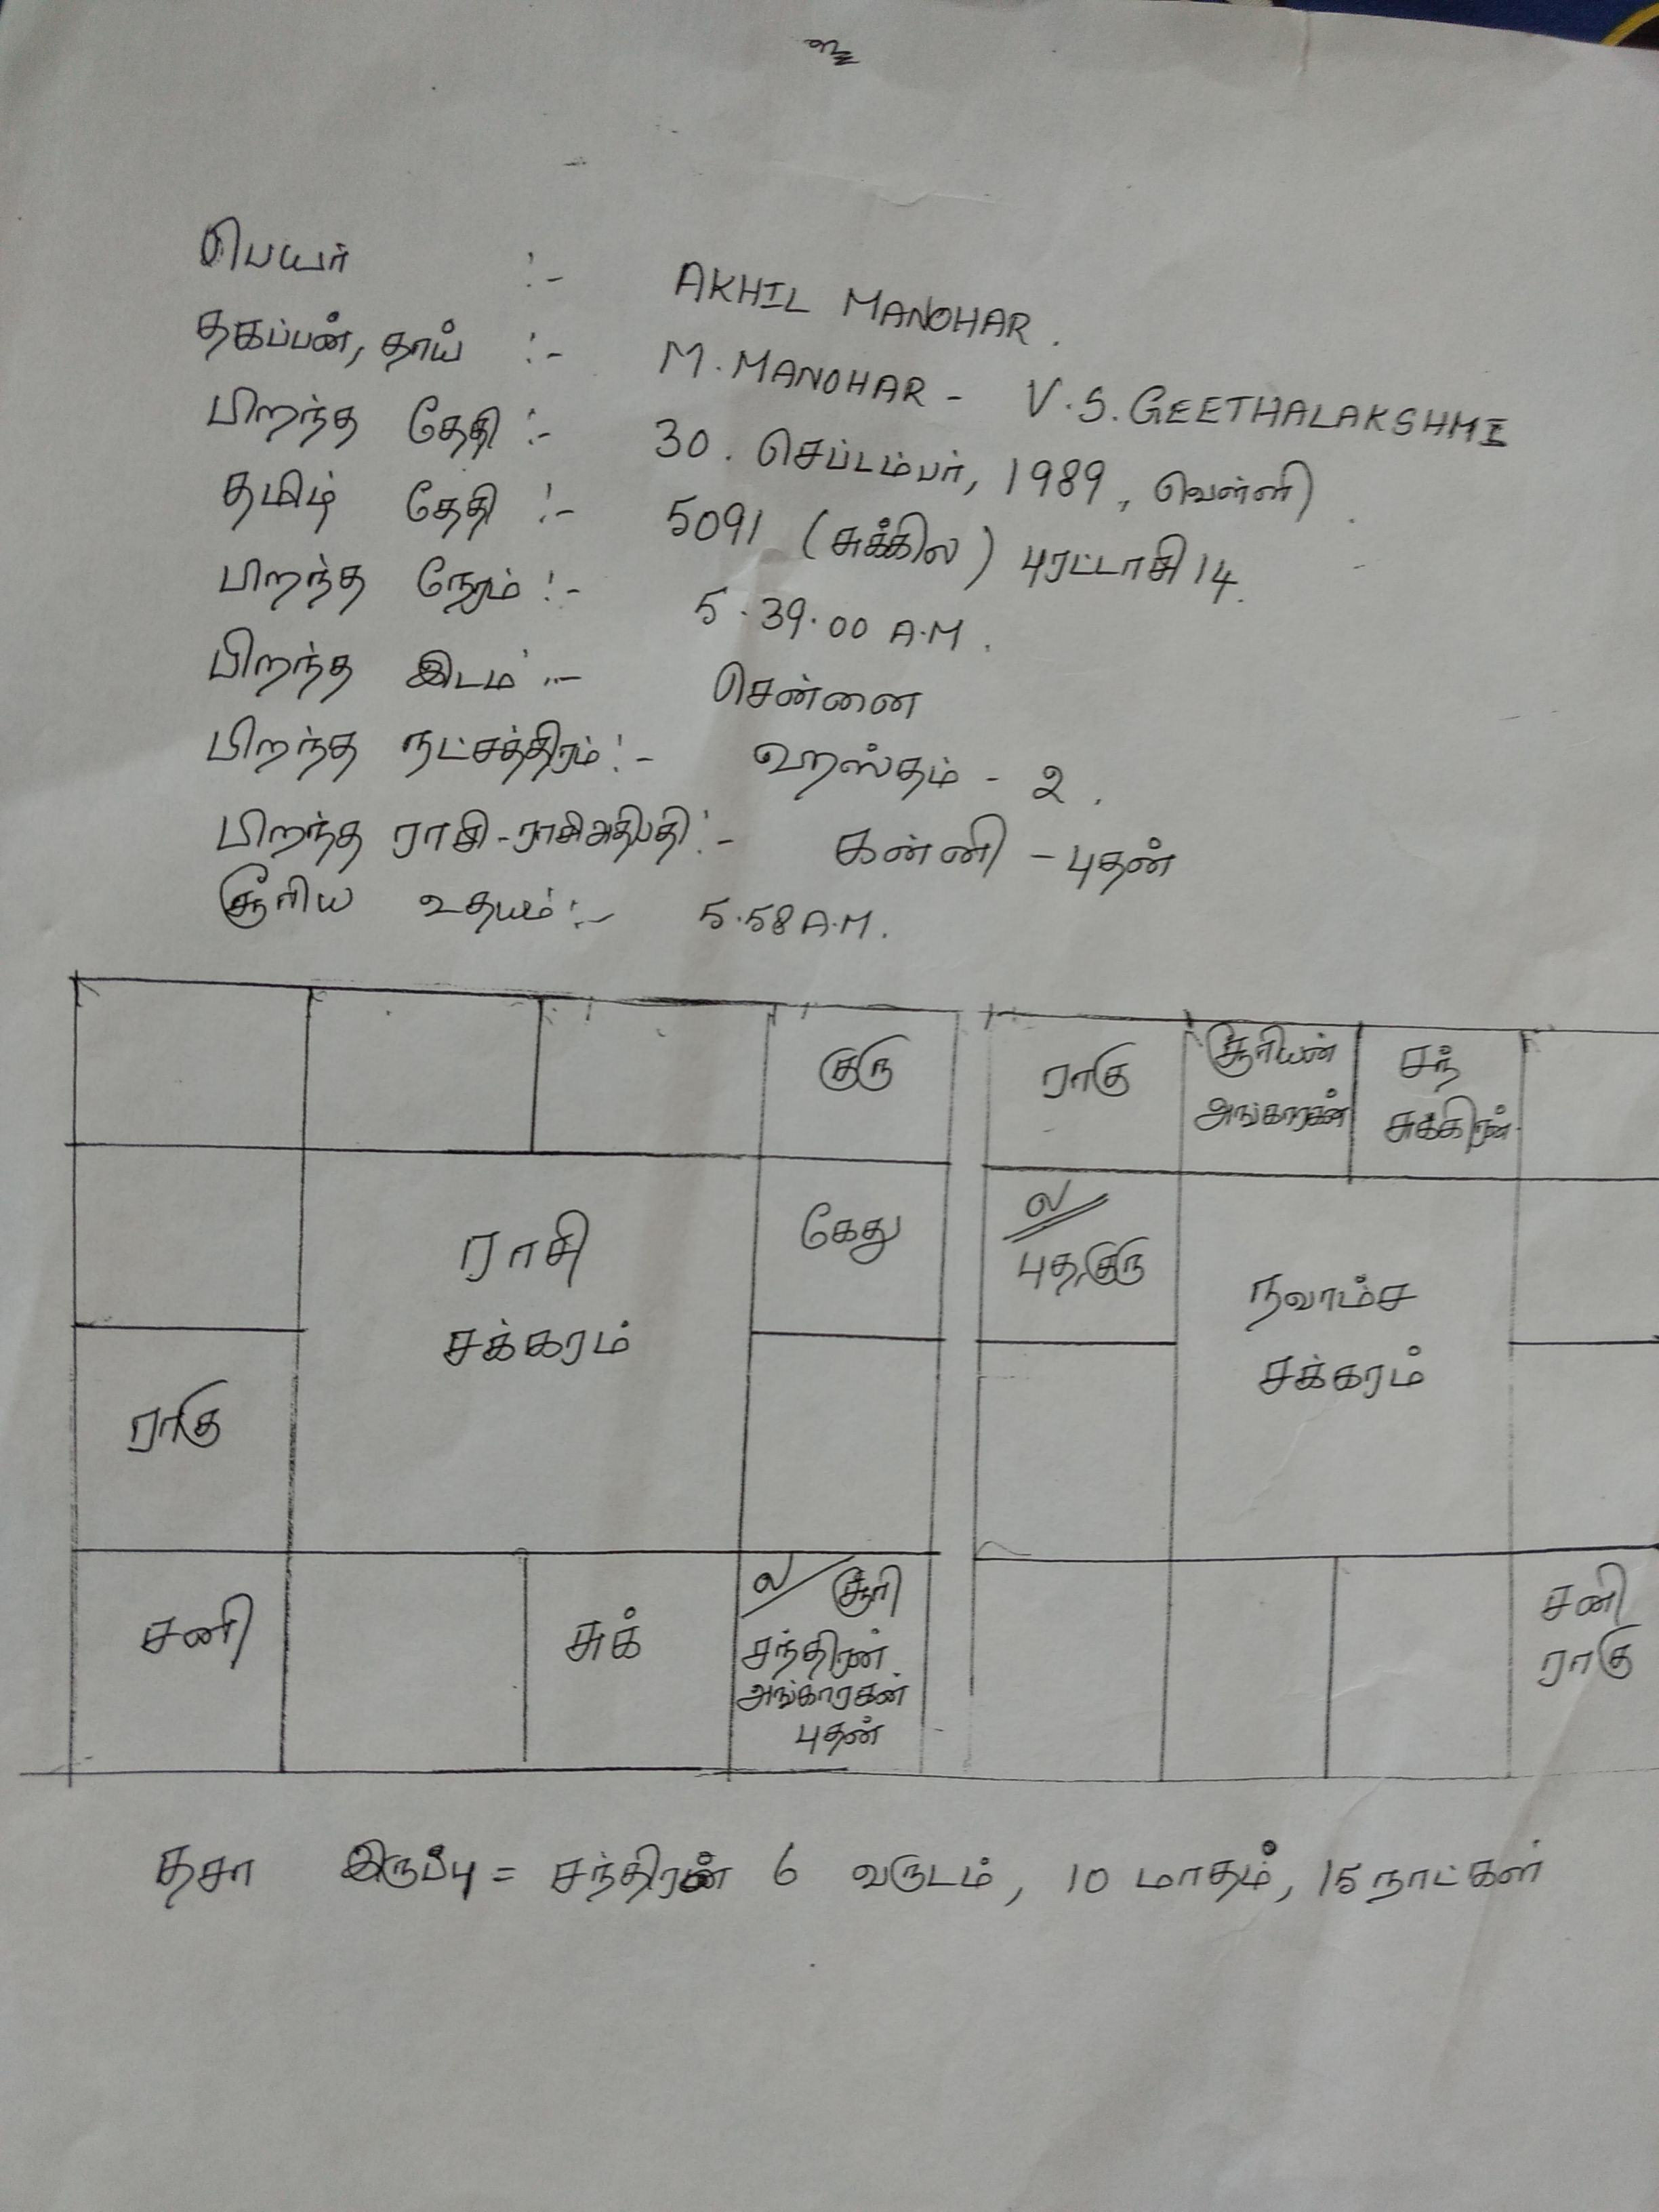 உ
பெயர் :- AKHIL MANOHAR.
தகப்பன், தாய் :- M. MANOHAR - V.S. GEETHALAKSHMI
பிறந்த தேதி :- 30. செப்டம்பர், 1989, வெள்ளி.
தமிழ் தேதி :- 5091 (சுக்கில) புரட்டாசி 14.
பிறந்த நேரம் :- 5.39.00 A.M.
பிறந்த இடம் :- சென்னை
பிறந்த நட்சத்திரம் :- ஹஸ்தம் - 2.
பிறந்த ராசி - ராசிஅதிபதி :- கன்னி - புதன்
சூரிய உதயம் :- 5.58 A.M.
குரு
கேது
ராசி
சக்கரம்
ராகு
சனி
சுக்
ல/ சூரி
சந்திரன்
அங்காரகன்
புதன்
ராகு
சூரியன்
அங்காரகன்
சந்
சுக்கிரன்
ல//
புத,குரு
நவாம்ச
சக்கரம்
சனி
ராகு
தசா இருப்பு = சந்திரன் 6 வருடம், 10 மாதம், 15 நாட்கள்